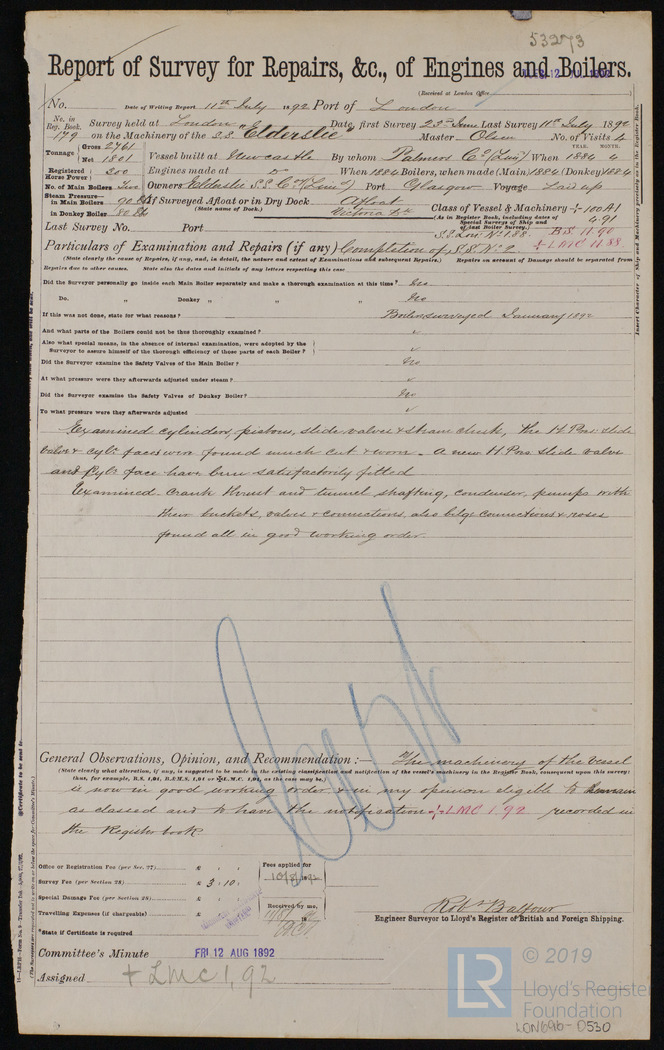 53273
Report of Survey for Repairs, &c., of Engines and Boilers.
(Received at London Office
No. Date of Writing Report 11th July 1892 Port of London
No. in Reg. Book. 179 Survey held at London Date, first Survey 23rd June Last Survey 11th July 1892
on the Machinery of the S.S. "Elderslie" Master Olsen No. of Visits 4
Tonnage Gross 2761 Net 1801
Vessel built at Newcastle By whom Palmers Co (Lim) When 1884 4
YEAR. MONTH.
Registered Horse Power 200 Engines made at Do When 1884 Boilers, when made (Main) 1884 (Donkey) 1884
No. of Main Boilers Two Owners Elderslie S.S. Co (Lim) Port Glasgow Voyage Laid up
Steam Pressure in Main Boilers 90 lbs If Surveyed Afloat or in Dry Dock Afloat
in Donkey Boiler 80 lbs (State name of Dock.) Victoria Dk
Class of Vessel & Machinery 100 A1
(As in Register Book, including dates of Special Surveys of Ship and of last Boiler Survey.) 4.91
Last Survey No. Port
B.S. 11.90
LMC 11.88
Particulars of Examination and Repairs (if any) Completion of S.S. No. 2
(State clearly the cause of Repairs, if any, and, in detail, the nature and extent of Examinations and subsequent Repairs.) Repairs on account of Damage should be separated from
Repairs due to other causes. State also the dates and initials of any letters respecting this case
Did the Surveyor personally go inside each Main Boiler separately and make a thorough examination at this time? No
Do. " Donkey " " " No
If this was not done, state for what reasons? Boilers surveyed January 1892
And what parts of the Boilers could not be thus thoroughly examined?
Also what special means, in the absence of internal examination, were adopted by the
Surveyor to assure himself of the thorough efficiency of those parts of each Boiler?
Did the Surveyor examine the Safety Valves of the Main Boiler? No
At what pressure were they afterwards adjusted under steam?
Did the Surveyor examine the Safety Valves of Donkey Boiler? No
To what pressure were they afterwards adjusted
Examined cylinders, pistons, slide valves & steam chests, the H Pres: slide
valve & cylr faces were found much cut & worn. A new H Pres slide valve
and cylr face have been satisfactorily fitted
Examined crank thrust and tunnel shafting, condenser, pumps with
their buckets, valves & connections, also bilge connections & roses
found all in good working order.
General Observations, Opinion, and Recommendation:— The machinery of the vessel
(State clearly what alteration, if any, is suggested to be made in the existing classification and notification of the vessel's machinery in the Register Book, consequent upon this survey:
thus, for example, B.S. 1,04, B.&M.S. 1,04 or L.M.C. 1,04, as the case may be.)
is now in good working order & in my opinion eligible to remain
as classed and to have the notification LMC 1.92 recorded in
the Register book
Office or Registration Fee (per Sec. 27)
Survey Fee (per Section 28) £ 3 . 10 .
Special Damage Fee (per Section 28)
Travelling Expenses (if chargeable)
*State if Certificate is required
Fees applied for
10/8/1892
Received by me,
Robt Balfour
Engineer Surveyor to Lloyd's Register of British and Foreign Shipping.
Committee's Minute FRI 12 AUG 1892
Assigned + LMC 1,92
LR
© 2019
Lloyd's Register
Foundation
LON696-0530